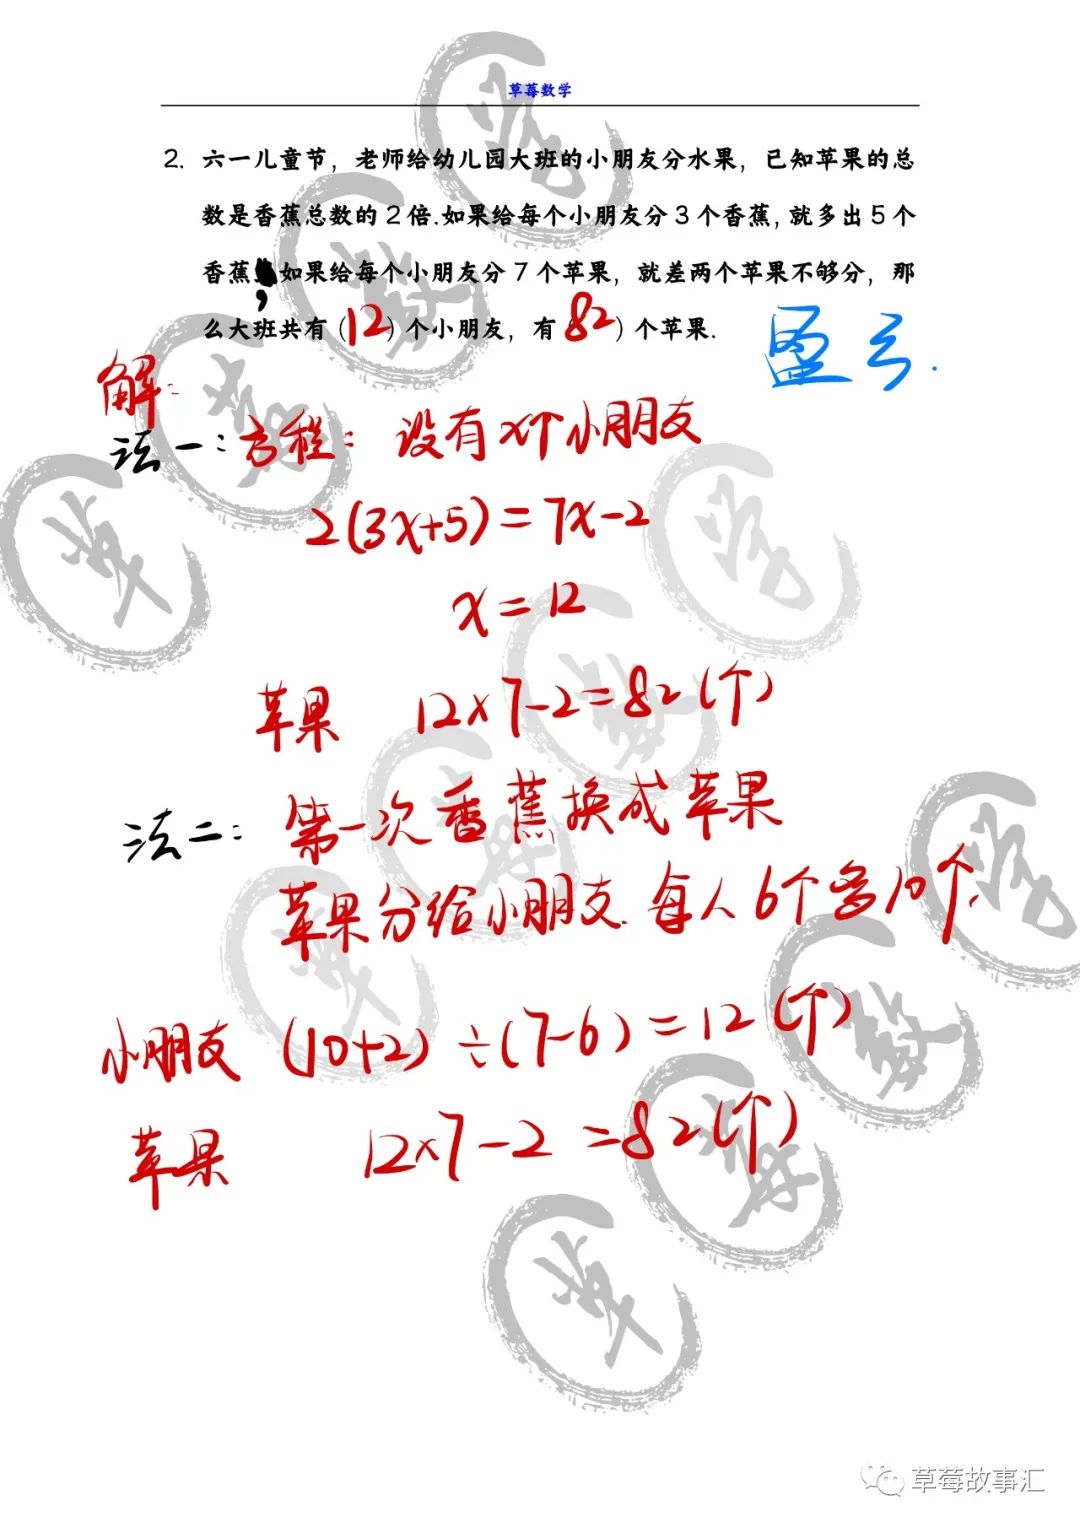 草莓数学
2. 六一儿童节，老师给幼儿园大班的小朋友分水果，已知苹果的总
数是香蕉总数的2倍.如果给每个小朋友分3个香蕉，就多出5个
香蕉，如果给每个小朋友分7个苹果，就差两个苹果不够分，那
么大班共有（12）个小朋友，有（82）个苹果.
盈亏.
解：
法一：方程：设有x个小朋友
2(3x+5)=7x-2
x=12
苹果 12×7-2=82(个)
法二：第一次香蕉换成苹果
苹果分给小朋友.每人6个多10个.
小朋友 (10+2)÷(7-6)=12(个)
苹果 12×7-2=82(个)
草莓故事汇